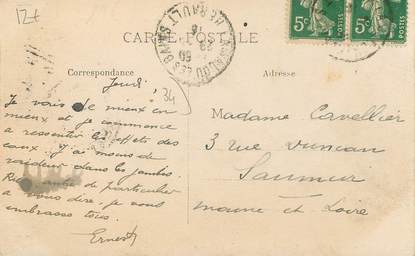 12€
CARTE POSTALE
Correspondance
Adresse
LAMALOU-LES-BAINS
HERAULT
5c 5c
POSTES
34
Jeudi
Je vais de mieux en
mieux et je commence
a ressentir les effets des
eaux. J'ai moins de
raideur dans les jambes.
Rien autre de particulier
a vous dire, je vous
embrasse tous.
Ernest
Madame Cavellier
3 rue Duncan
Saumur
Maine et Loire